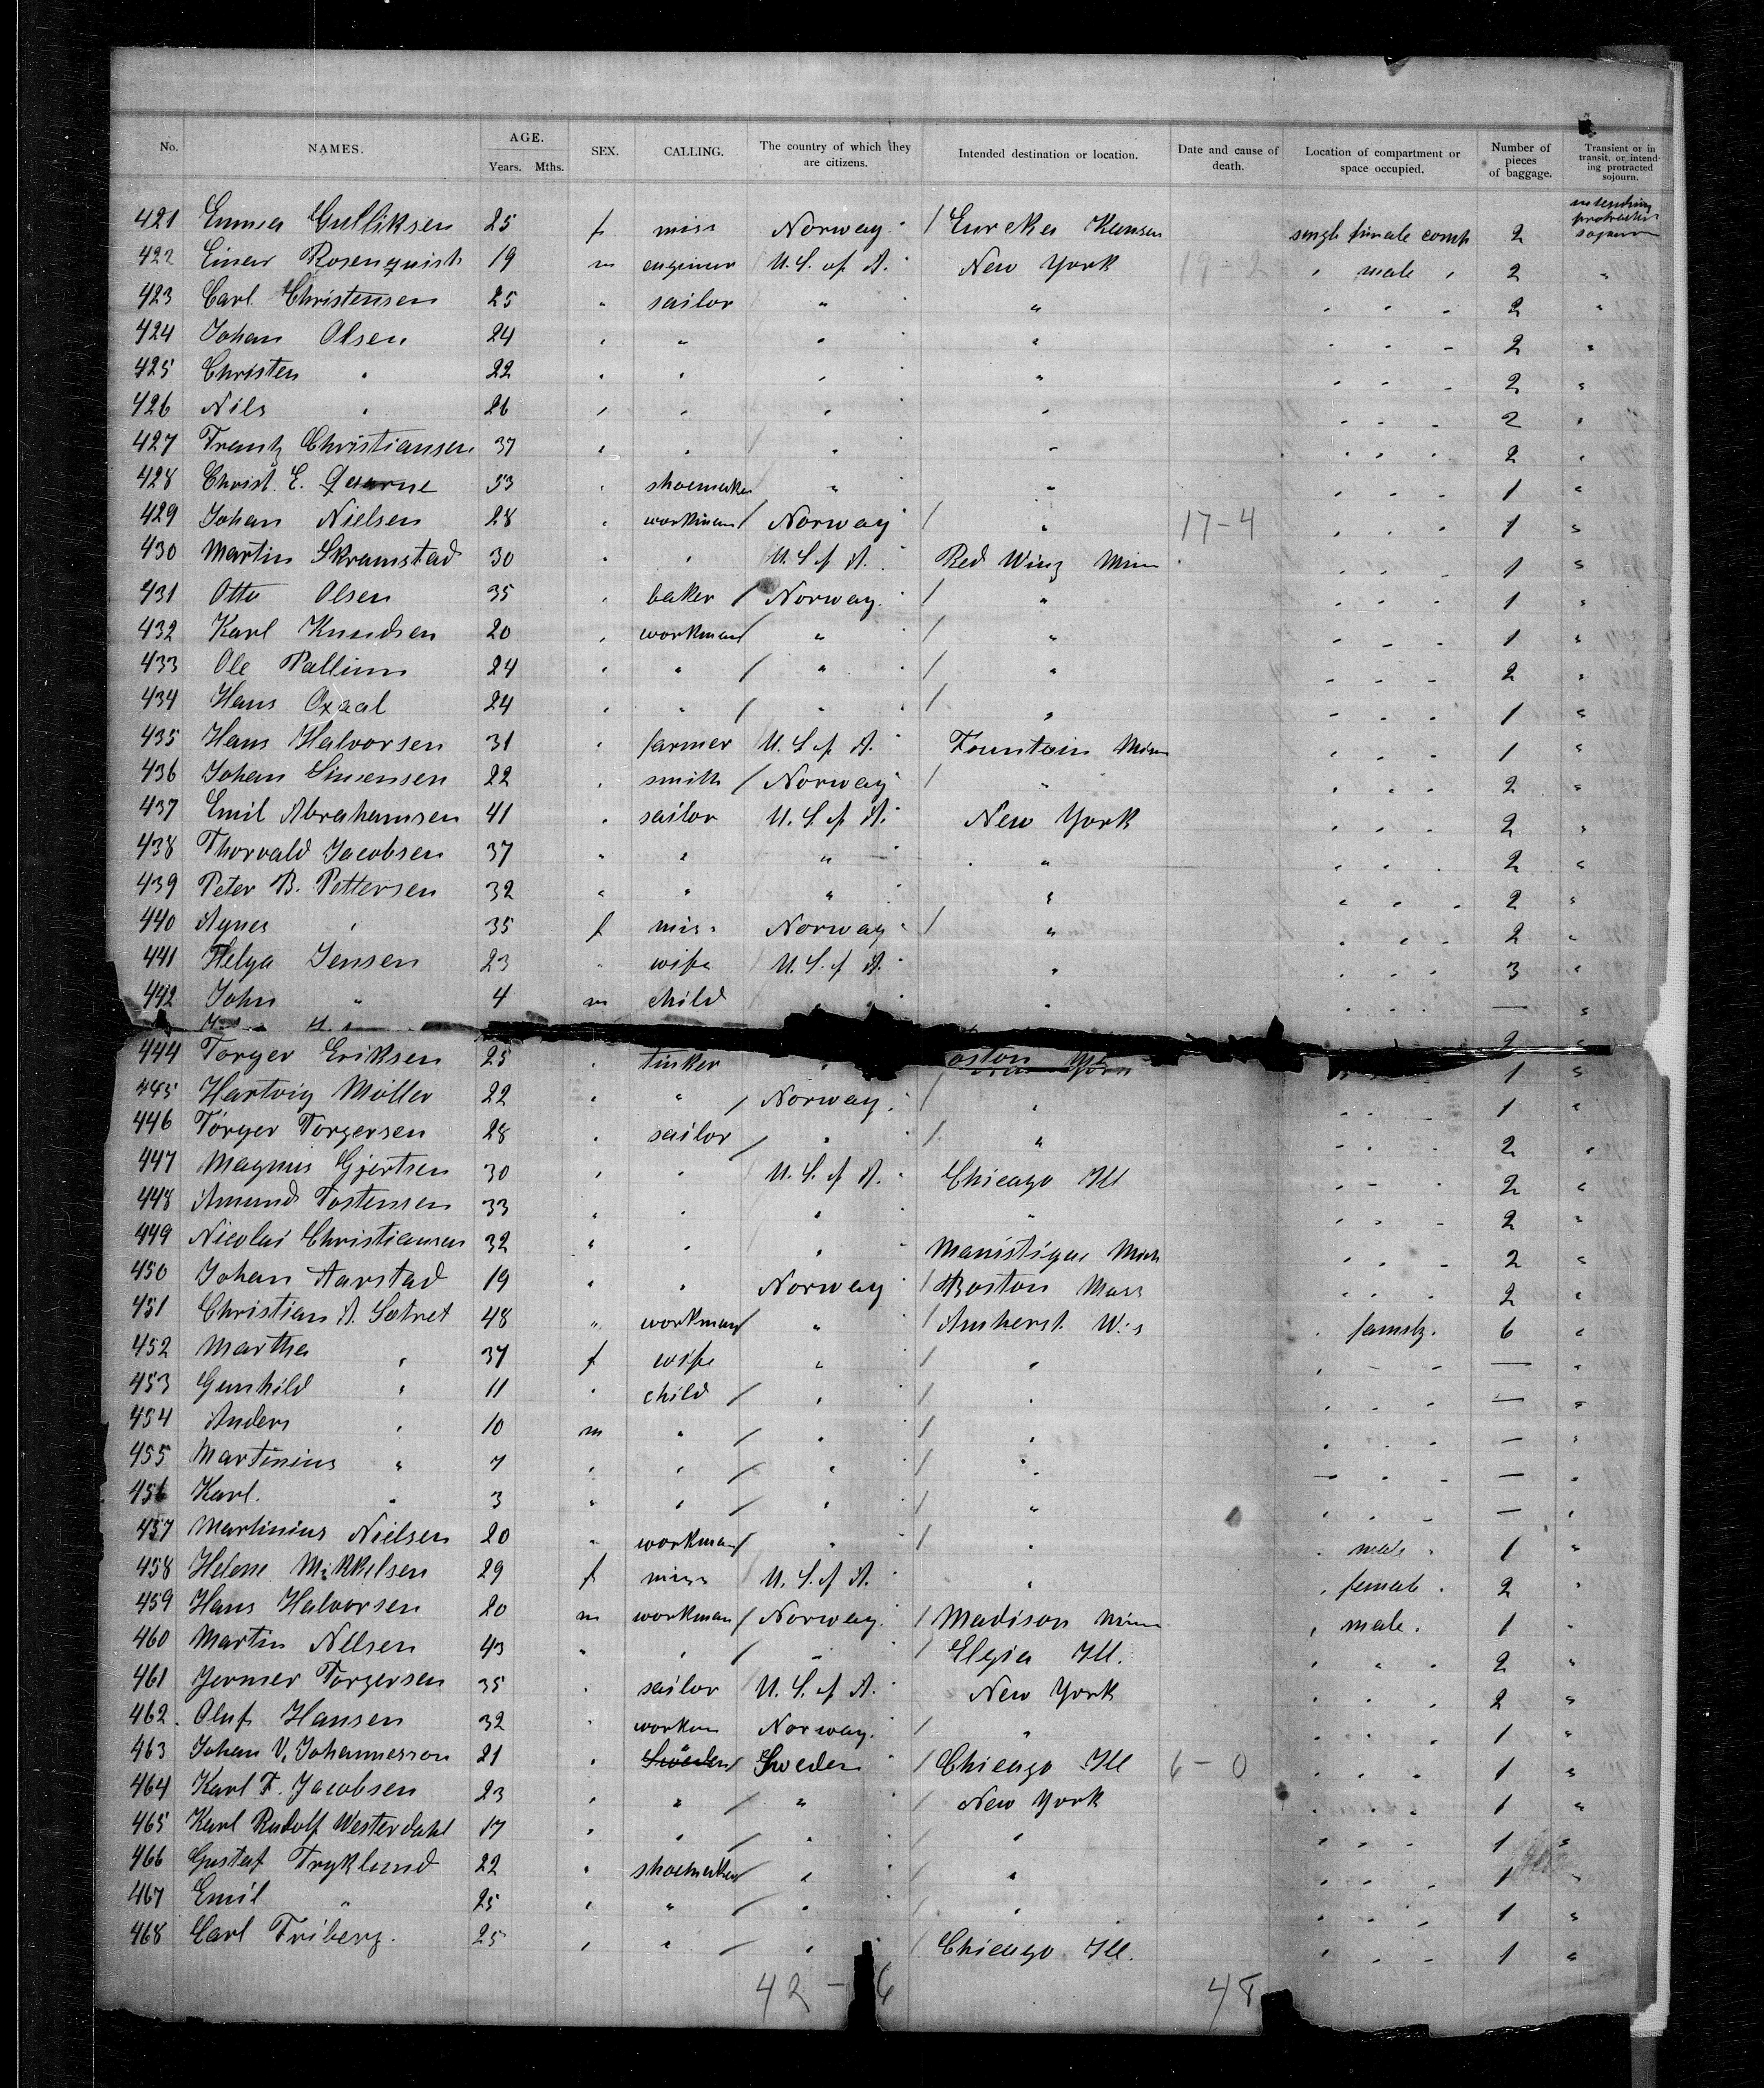 No. NAMES. AGE. Years. Mths. SEX. CALLING. The country of which they are citizens. Intended destination or location. Date and cause of death. Location of compartment or space occupied. Number of pieces of baggage. Transient or in transit, or intending protracted sojourn.
421 Emma Gulliksen 25 f miss Norway / Eureka Kansas single female comp 2 intending protracted sojourn
422 Einar Rosenquist 19 m engineer U.S. of A. New York 19-2 " male " 2 "
423 Carl Christensen 25 " sailor " " " " " 2 "
424 Johan Olsen 24 " " " " " " " 2 "
425 Christen " 22 " " " " " " " 2 "
426 Nils " 26 " " " " " " " 2 "
427 Frantz Christiansen 37 " " " " " " " 2 "
428 Christ. E. 53 " shoemaker " " " " " 1 "
429 Johan Nielsen 28 " workman / Norway / " 17-4 " " " 1 "
430 Martin Skramstad 30 " " U.S. of A. Red Wing Minn " " " 1 "
431 Otto Olsen 35 " baker / Norway / " " " " 1 "
432 Karl Knudsen 20 " workman / " / " " " " 1 "
433 Ole Pallum 24 " " / " / " " " " 2 "
434 Hans Oxaal 24 " " / " / " " " " 1 "
435 Hans Halvorsen 31 " farmer U.S. of A. Fountain Minn " " " 1 "
436 Johan Simensen 22 " smith / Norway / " " " " 2 "
437 Emil Abrahamsen 41 " sailor U.S. of A. New York " " " 2 "
438 Thorvald Jacobsen 37 " " " " " " " 2 "
439 Peter B. Pettersen 32 " " " " " " " 2 "
440 Agnes " 35 f miss Norway / " " " " 2 "
441 Helga Jensen 23 " wife U.S. of A. " " " " 3 "
442 John " 4 m child " " " " " — "
2 "
444 Torger Eriksen 25 " tinker " " " " 1 "
445 Hartvig Möller 22 " " / Norway / " " " " 1 "
446 Torger Torgersen 28 " sailor / " / " " " " 2 "
447 Magnus Gjertsen 30 " " U.S. of A. Chicago Ill " " " 2 "
448 Amund Tostensen 33 " " " " " " " 2 "
449 Nicolai Christiansen 32 " " " Manistique Mich " " " 2 "
450 Johan Aarstad 19 " " Norway / Boston Mass " " " 2 "
451 Christian A. Sotret 48 " workman / " / Amherst Wis " family. 6 "
452 Martha " 37 f wife " / " " " " — "
453 Gunhild " 11 " child / " / " " " " — "
454 Anders " 10 m " / " / " " " " — "
455 Martinius " 7 " " / " / " " " " — "
456 Karl. " 3 " " / " / " " " " — "
457 Martinius Nielsen 20 " workman / " / " " male " 1 "
458 Helene Mikkelsen 29 f miss U.S. of A. " " female " 2 "
459 Hans Halvorsen 20 m workman / Norway / Madison Minn " male " 1 "
460 Martin Nilsen 43 " " / " / Elgin Ill. " " " 2 "
461 Jermer Torgersen 35 " sailor U.S. of A. New York " " " 2 "
462. Oluf Hansen 32 " workm Norway. / " " " " 1 "
463 Johan V. Johannesson 21 " Sweden / Sweden / Chicago Ill 6-0 " " " 1 "
464 Karl F. Jacobsen 23 " " / " / New York " " " 1 "
465 Karl Rudolf Westerdahl 17 " " / " / " " " " 1 "
466 Gustaf Tryklund 22 " shoemaker / " / " " " " 1 "
467 Emil " 25 " " / " / " " " " 1 "
468 Carl Friberg. 25 " " / " / Chicago Ill. " " " 1 "
42 - 6 48